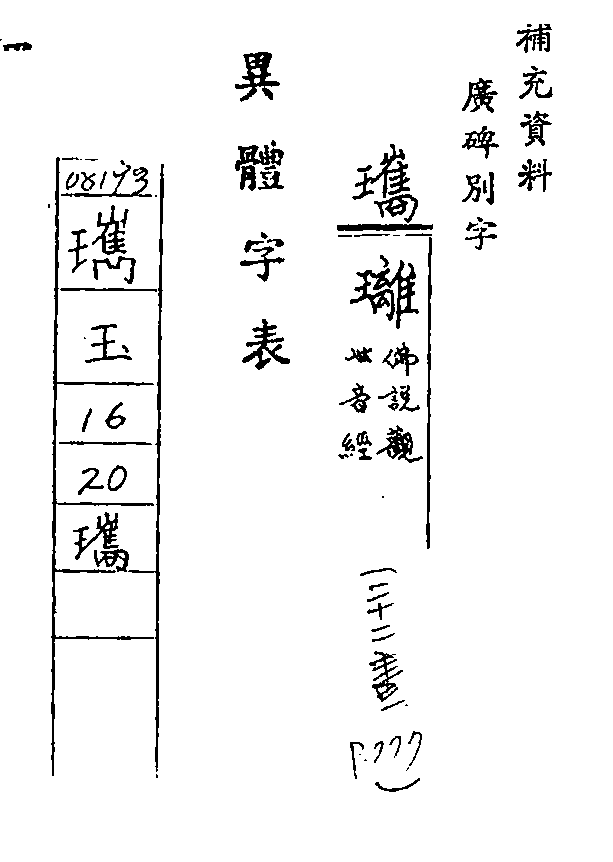 補充資料
廣碑別字
瓗
佛說觀
世音經
(二十二畫 P.777)
異體字表
玉
16
20